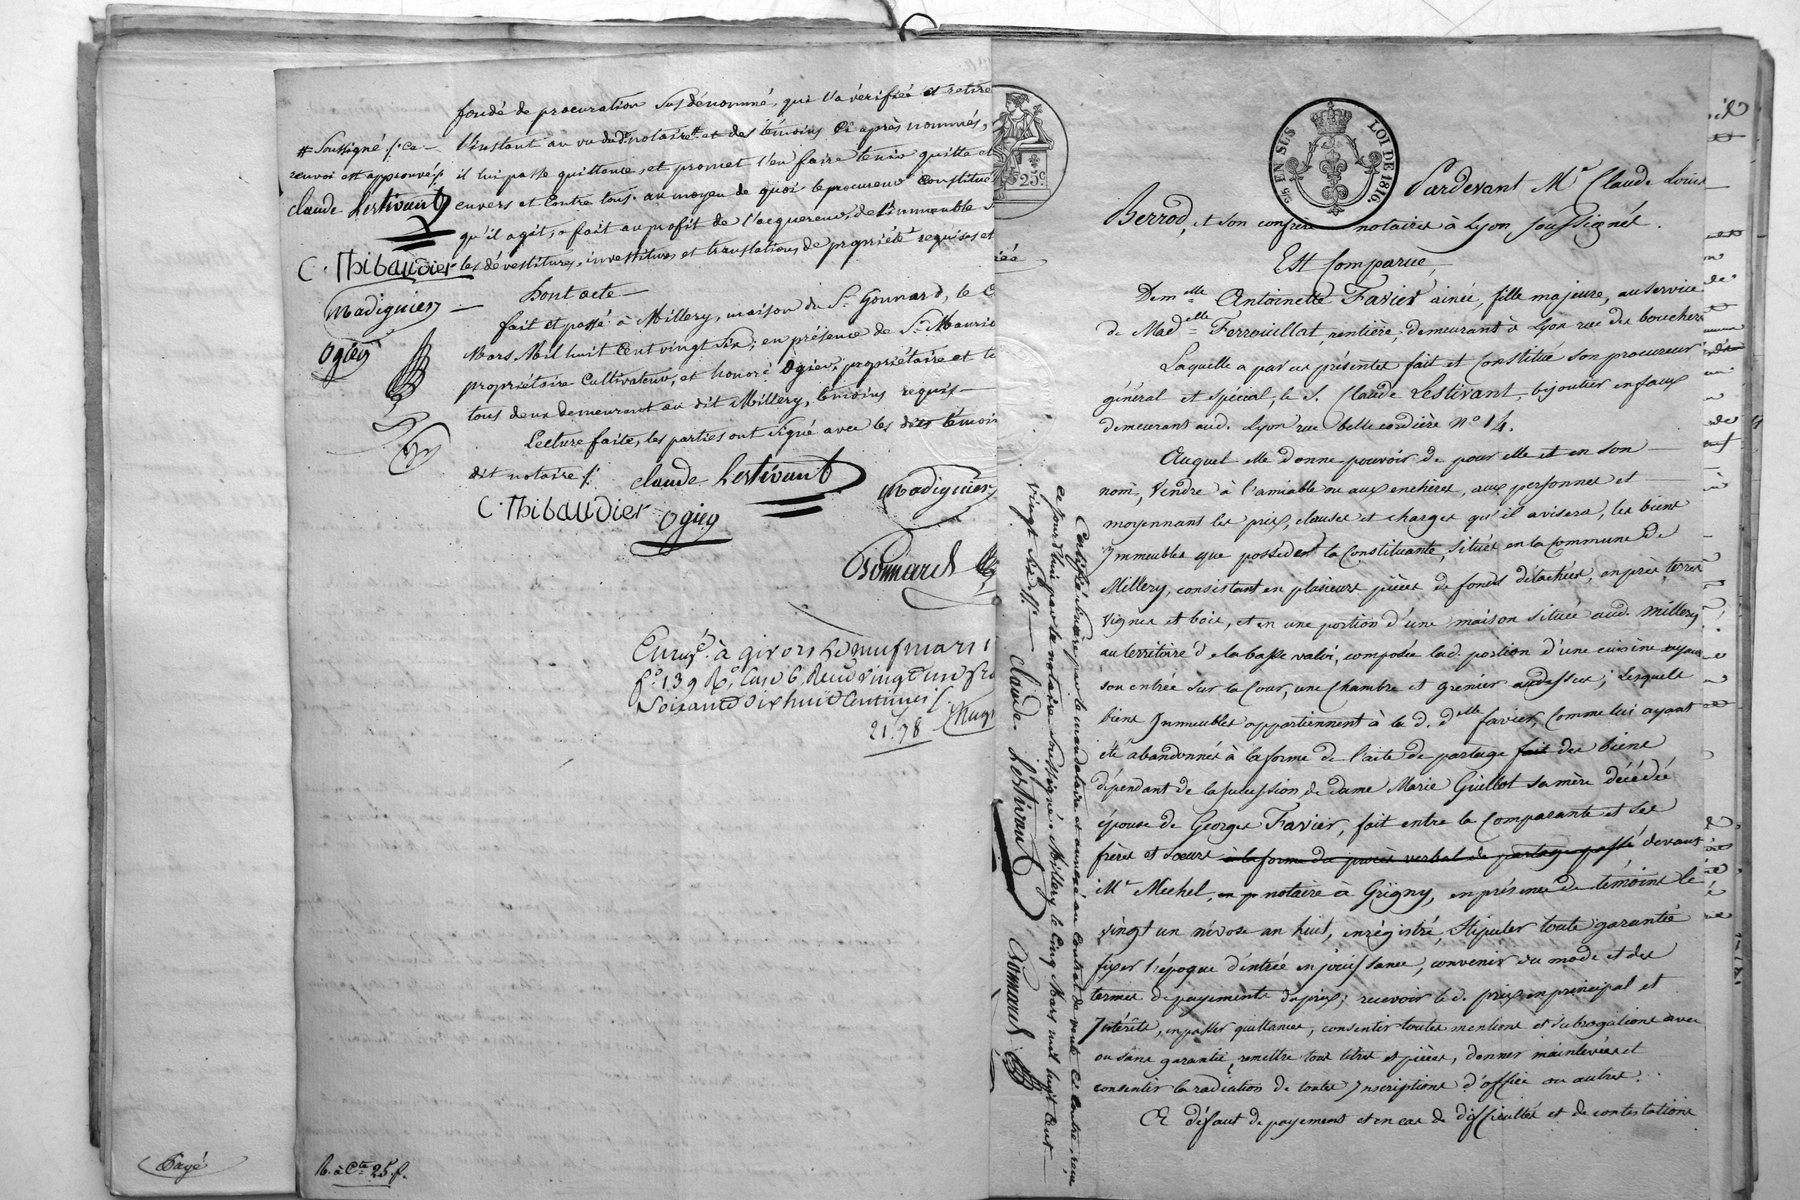 fondé de procuration susdénommé, qui l'a vérifiée et retirée
l'instant au vu dud. notaire # et des témoins ci après nommés,
# Soussigné /. ce
renvoi est approuvé /.
il lui passe quittance, et promet l'en faire tenir quitte et
Claude Lestivant
envers et contre tous. au moyen de quoi le procureur constitué
qu'il agit, a fait au profit de l'acquereur, de l'immeuble
C. Thibaudier
les dévestitures, investitures et translations de propriété requises et
Madignier
Dont acte
fait et passé à Millery, maison du Sr. Gonnard, le
Ogier
Mars, Mil huit cent vingt six; en présence de Sr. Mauric
propriétaire cultivateur, et honoré Ogier, propriétaire et
tous deux demeurant au dit Millery, témoins requis
Lecture faite, les parties ont signé avec les dits témoin
dit notaire /.
Claude Lestivant
Madignier
C. Thibaudier Ogier
Bonnard
Enregé. à givors le neuf mars
fo. 139 Ro. Case 6, Reçu vingt un fr
Soixante dix huit Centimes /.
21.78
R. à Cte 25 f.
Payé
25c.
25 EN SUS LOI DE 1816.
Certifié sincère par le mandataire et annexé au contrat de vente ci contre, reçu
ce jourd'hui par le notaire soussigné à Millery le cinq Mars mil huit cent
vingt six /. Claude Lestivant Bonnard
Pardevant Me Claude Louis
Berrod, et son confrère notaires à Lyon soussignés.
Est Comparue,
Demelle Antoinette Favier ainée, fille majeure, au service
de Madelle Ferrouillat, rentière, demeurant à Lyon rue des bouchers
Laquelle a par ces présentes fait et constitué son procureur
général et spécial, le S. Claude Lestivant, bijoutier en faux
demeurant aud. Lyon rue belle cordière No 14.
Auquel elle donne pouvoir de pour elle et en son
nom, Vendre à l'amiable ou aux enchères, aux personnes et
moyennant les prix, clauses et charges qu'il avisera, les biens
Immeubles que possède la Constituante, situés en la Commune de
Millery, consistant en plusieurs pièces de fonds détachées, en prés, terres
vignes et bois, et en une portion d'une maison située aud. Millery
au territoire de la basse valoi, composée lad. portion d'une cuisine ayant
son entrée sur la Cour, une chambre et grenier audessus; lesquels
biens Immeubles appartiennent à la d. delle favier, comme lui ayant
été abandonnés à la forme de l'acte de partage fait des biens
dépendant de la succession de dame Marie Guillot sa mère décédée
épouse de Georges Favier, fait entre la Comparante et ses
frères et sœurs à la forme du procès verbal de partage passé devant
Me Michel, notaire à Grigny, en présence de témoins le
vingt un nivose an huit, enregistré, Stipuler toute garantie
fixer l'époque d'entrée en jouissance, convenir du mode et des
termes de payements du prix; recevoir led. prix en principal et
Intérêts, en passer quittances, consentir toutes mentions et subrogations avec
ou sans garantie, remettre tous titres et pièces, donner mainlevées et
consentir la radiation de toutes Inscriptions d'office ou autres.
A défaut de payement et en cas de difficultés et de contestations